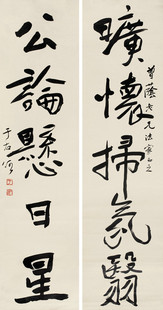 曠懷掃氛翳
蔭老兄法家正之
公論懸日星
于右任